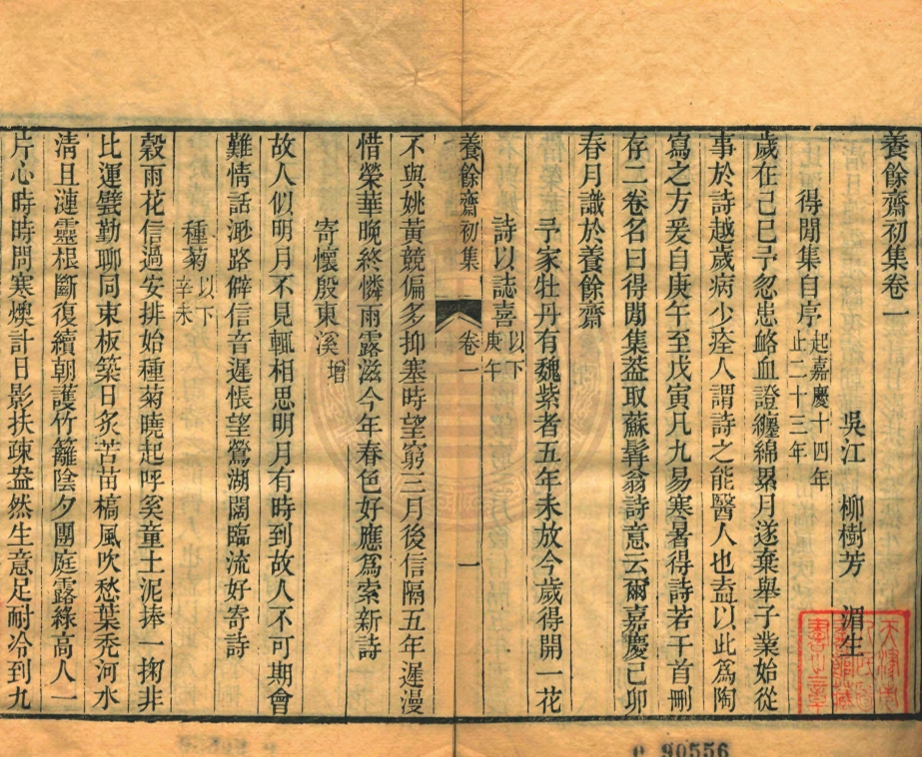 養餘齋初集卷一
吳江 柳樹芳 湄生
得閒集自序起嘉慶十四年止二十三年
歲在己巳予忽患咯血證纏綿累月遂棄舉子業始從
事於詩越歲病少痊人謂詩之能醫人也盍以此爲陶
寫之方爰自庚午至戊寅凡九易寒暑得詩若干首刪
存二卷名曰得閒集葢取蘇髯翁詩意云爾嘉慶己卯
春月識於養餘齋
予家牡丹有魏紫者五年未放今歲得開一花
詩以誌喜以下庚午
養餘齋初集 卷一 一
不與姚黃競偏多抑塞時望窮三月後信隔五年遲漫
惜榮華晚終憐雨露滋今年春色好應爲索新詩
寄懷殷東溪增
故人似明月不見輒相思明月有時到故人不可期會
難情話渺路僻信音遲悵望鶯湖闊臨流好寄詩
種菊以下辛未
穀雨花信過安排始種菊曉起呼奚童土泥捧一掬非
比運甓勤聊同束板築日炙苦苗槁風吹愁葉禿河水
淸且漣靈根斷復續朝護竹籬陰夕團庭露綠高人一
片心時時問寒燠計日影扶疎盎然生意足耐冷到九
90556